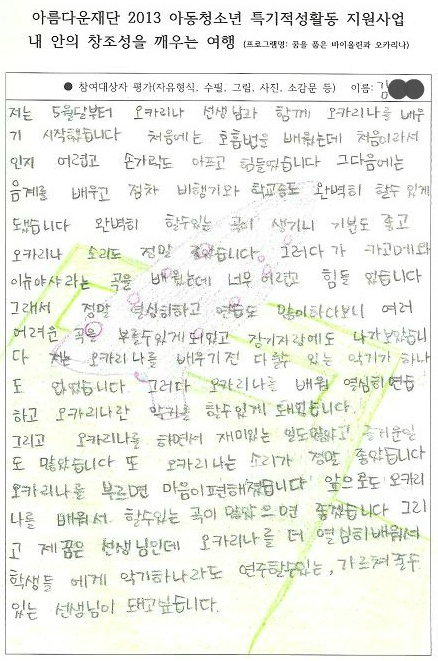 아름다운재단 2013 아동청소년 특기적성활동 지원사업
내 안의 창조성을 깨우는 여행 (프로그램명: 꿈을 품은 바이올린과 오카리나)
● 참여대상자 평가(자유형식, 수필, 그림, 사진, 소감문 등) 이름: 김
저는 5월달부터 오카리나 선생님과 함께 오카리나를 배우
기 시작했습니다 처음에는 호흡법을 배웠는데 처음이라서
인지 어렵고 손가락도 아프고 힘들었습니다 그다음에는
음계를 배우고 점차 비행기와 학교종도 완벽히 할수 있게
됐습니다 완벽히 할수있는 곡이 생기니 기분도 좋고
오카리나 소리도 정말 좋았습니다. 그러다가 카고메와
이뉴야샤라는 곡을 배웠는데 너무 어렵고 힘들 었습니다
그래서 정말 열심히하고 연습도 많이하다보니 여러
어려운 곡을 부를수있게 되었고 장기자랑에도 나가보았습니
다 저는 오카리나를 배우기전 다룰수 있는 악기가 하나
도 없었습니다. 그러다 오카리나를 배워 열심히 연습
하고 오카리나란 악기를 할수있게 돼었습니다.
그리고 오카리나를 하면서 재미있는 일도많았고 즐거운일
도 많았습니다 또 오카리나는 소리가 정말 좋았습니다
오카리나를 부르면 마음이편해졌습니다 앞으로도 오카리
나를 배워서 할수있는 곡이 많았으면 좋겠습니다 그리
고 제 꿈은 선생님인데 오카리나를 더 열심히배워서
학생들 에게 악기하나라도 연주할수있는, 가르쳐줄수
있는 선생님이 돼고싶습니다.